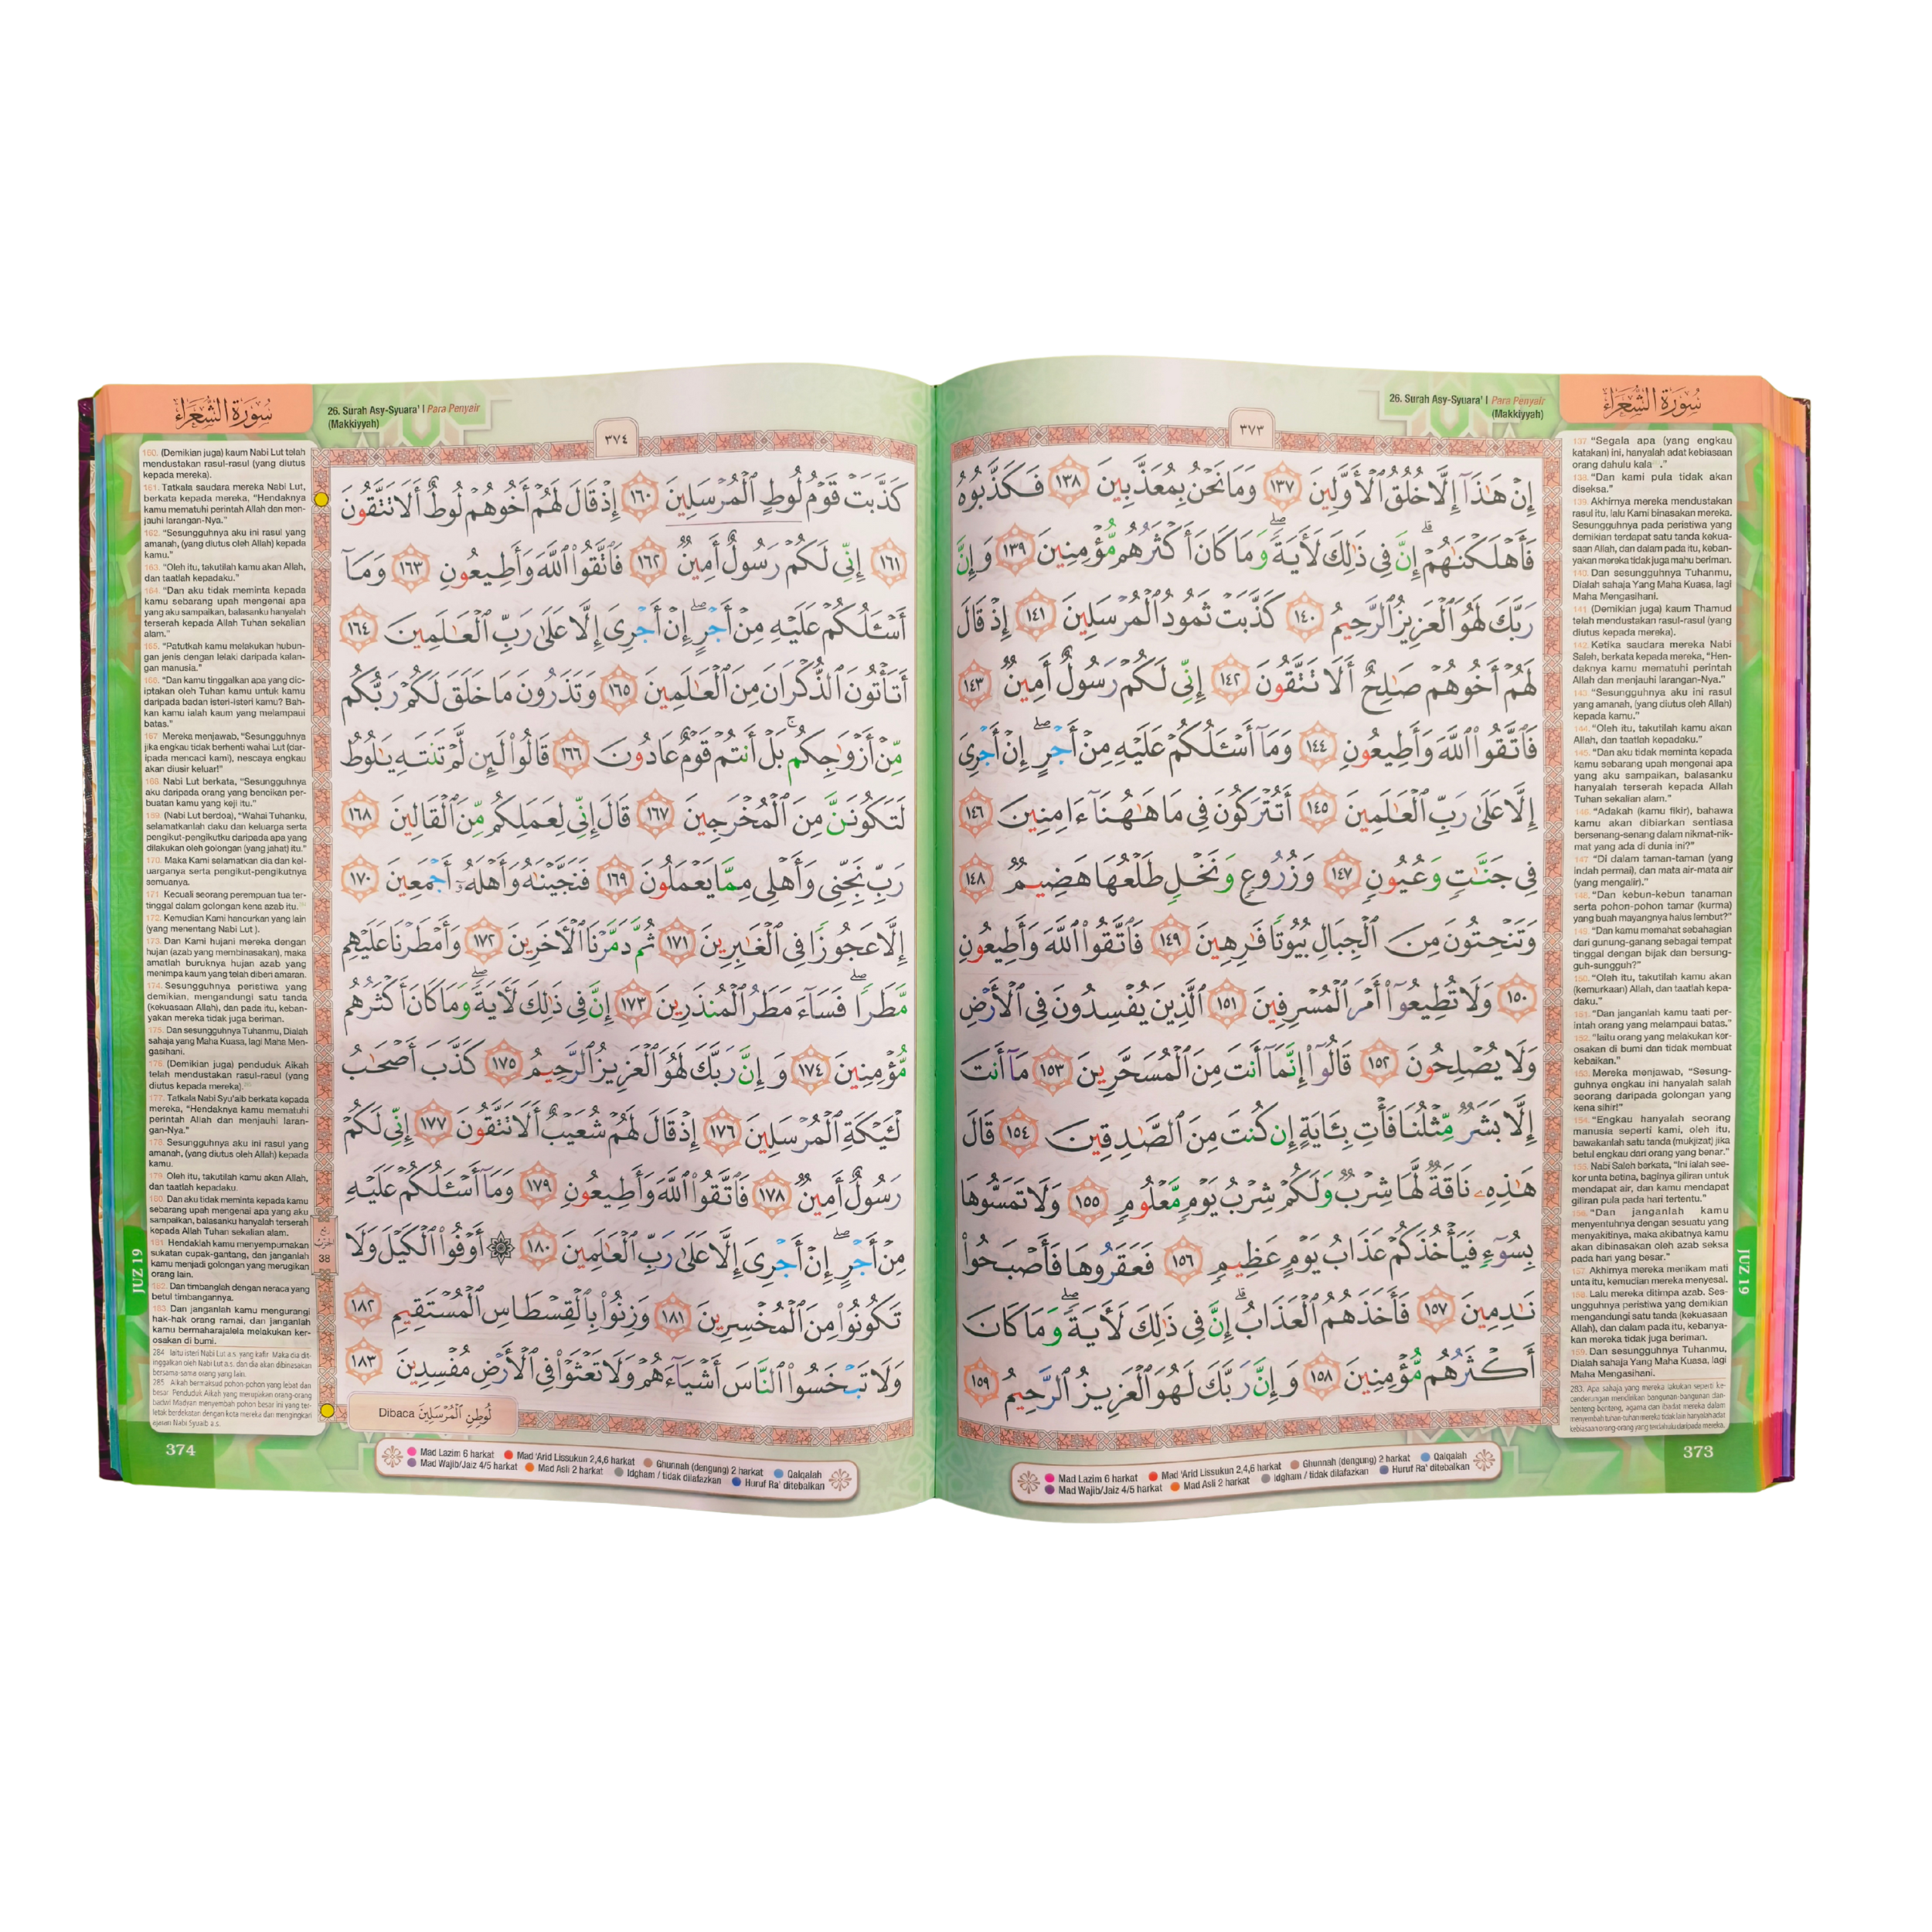 سُورَةُ الشُّعَرَاءِ
26. Surah Asy-Syuara' | Para Penyair
(Makkiyyah)
٣٧٣
إِنْ هَٰذَآ إِلَّا خُلُقُ ٱلْأَوَّلِينَ ١٣٧ وَمَا نَحْنُ بِمُعَذَّبِينَ ١٣٨ فَكَذَّبُوهُ
فَأَهْلَكْنَٰهُمْ ۗ إِنَّ فِى ذَٰلِكَ لَأَيَةً ۖ وَمَا كَانَ أَكْثَرُهُم مُّؤْمِنِينَ ١٣٩ وَإِنَّ
رَبَّكَ لَهُوَ ٱلْعَزِيزُ ٱلرَّحِيمُ ١٤٠ كَذَّبَتْ ثَمُودُ ٱلْمُرْسَلِينَ ١٤١ إِذْ قَالَ
لَهُمْ أَخُوهُمْ صَٰلِحٌ أَلَا تَتَّقُونَ ١٤٢ إِنِّى لَكُمْ رَسُولٌ أَمِينٌ ١٤٣
فَٱتَّقُوا۟ ٱللَّهَ وَأَطِيعُونِ ١٤٤ وَمَآ أَسْـَٔلُكُمْ عَلَيْهِ مِنْ أَجْرٍ ۖ إِنْ أَجْرِىَ
إِلَّا عَلَىٰ رَبِّ ٱلْعَٰلَمِينَ ١٤٥ أَتُتْرَكُونَ فِى مَا هَٰهُنَآ ءَامِنِينَ ١٤٦
فِى جَنَّٰتٍ وَعُيُونٍ ١٤٧ وَزُرُوعٍ وَنَخْلٍ طَلْعُهَا هَضِيمٌ ١٤٨
وَتَنْحِتُونَ مِنَ ٱلْجِبَالِ بُيُوتًا فَٰرِهِينَ ١٤٩ فَٱتَّقُوا۟ ٱللَّهَ وَأَطِيعُونِ
١٥٠ وَلَا تُطِيعُوٓا۟ أَمْرَ ٱلْمُسْرِفِينَ ١٥١ ٱلَّذِينَ يُفْسِدُونَ فِى ٱلْأَرْضِ
وَلَا يُصْلِحُونَ ١٥٢ قَالُوٓا۟ إِنَّمَآ أَنتَ مِنَ ٱلْمُسَحَّرِينَ ١٥٣ مَآ أَنتَ
إِلَّا بَشَرٌ مِّثْلُنَا فَأْتِ بِـَٔايَةٍ إِن كُنتَ مِنَ ٱلصَّٰدِقِينَ ١٥٤ قَالَ
هَٰذِهِۦ نَاقَةٌ لَّهَا شِرْبٌ وَلَكُمْ شِرْبُ يَوْمٍ مَّعْلُومٍ ١٥٥ وَلَا تَمَسُّوهَا
بِسُوٓءٍ فَيَأْخُذَكُمْ عَذَابُ يَوْمٍ عَظِيمٍ ١٥٦ فَعَقَرُوهَا فَأَصْبَحُوا۟
نَٰدِمِينَ ١٥٧ فَأَخَذَهُمُ ٱلْعَذَابُ ۗ إِنَّ فِى ذَٰلِكَ لَأَيَةً ۖ وَمَا كَانَ
أَكْثَرُهُم مُّؤْمِنِينَ ١٥٨ وَإِنَّ رَبَّكَ لَهُوَ ٱلْعَزِيزُ ٱلرَّحِيمُ ١٥٩
137. "Segala apa (yang engkau
katakan) ini, hanyalah adat kebiasaan
orang dahulu kala."
138. "Dan kami pula tidak akan
diseksa."
139. Akhirnya mereka mendustakan
rasul itu, lalu Kami binasakan mereka.
Sesungguhnya pada peristiwa yang
demikian terdapat satu tanda kekua-
saan Allah, dan dalam pada itu, keban-
yakan mereka tidak juga mahu beriman.
140. Dan sesungguhnya Tuhanmu,
Dialah sahaja Yang Maha Kuasa, lagi
Maha Mengasihani.
141. (Demikian juga) kaum Thamud
telah mendustakan rasul-rasul (yang
diutus kepada mereka).
142. Ketika saudara mereka Nabi
Saleh, berkata kepada mereka, "Hen-
daknya kamu mematuhi perintah
Allah dan menjauhi larangan-Nya."
143. "Sesungguhnya aku ini rasul
yang amanah, (yang diutus oleh Allah)
kepada kamu."
144. "Oleh itu, takutilah kamu akan
Allah, dan taatlah kepadaku."
145. "Dan aku tidak meminta kepada
kamu sebarang upah mengenai apa
yang aku sampaikan, balasanku
hanyalah terserah kepada Allah
Tuhan sekalian alam."
146. "Adakah (kamu fikir), bahawa
kamu akan dibiarkan sentiasa
bersenang-senang dalam nikmat-nik-
mat yang ada di dunia ini?"
147. "Di dalam taman-taman (yang
indah permai), dan mata air-mata air
(yang mengalir)."
148. "Dan kebun-kebun tanaman
serta pohon-pohon tamar (kurma)
yang buah mayangnya halus lembut?"
149. "Dan kamu memahat sebahagian
dari gunung-ganang sebagai tempat
tinggal dengan bijak dan bersung-
guh-sungguh?"
150. "Oleh itu, takutilah kamu akan
(kemurkaan) Allah, dan taatlah kepa-
daku."
151. "Dan janganlah kamu taati per-
intah orang yang melampaui batas."
152. "Iaitu orang yang melakukan ker-
osakan di bumi dan tidak membuat
kebaikan."
153. Mereka menjawab, "Sesung-
guhnya engkau ini hanyalah salah
seorang daripada golongan yang
kena sihir!"
154. "Engkau hanyalah seorang
manusia seperti kami, oleh itu,
bawakanlah satu tanda (mukjizat) jika
betul engkau dari orang yang benar."
155. Nabi Saleh berkata, "Ini ialah see-
kor unta betina, baginya giliran untuk
mendapat air, dan kamu mendapat
giliran pula pada hari tertentu."
156. "Dan janganlah kamu
menyentuhnya dengan sesuatu yang
menyakitinya, maka akibatnya kamu
akan dibinasakan oleh azab seksa
pada hari yang besar."
157. Akhirnya mereka menikam mati
unta itu, kemudian mereka menyesal.
158. Lalu mereka ditimpa azab. Ses-
ungguhnya peristiwa yang demikian
mengandungi satu tanda (kekuasaan
Allah), dan dalam pada itu, kebanya-
kan mereka tidak juga beriman.
159. Dan sesungguhnya Tuhanmu,
Dialah sahaja Yang Maha Kuasa, lagi
Maha Mengasihani.
283. Apa sahaja yang mereka lakukan seperti ke-
cenderungan mendirikan bangunan-bangunan dan
benteng-benteng, agama dan ibadat mereka dalam
menyembah tuhan-tuhan mereka tidak lain hanyalah adat
kebiasaan orang-orang yang terdahulu daripada mereka.
JUZ 19
Mad Lazim 6 harkat Mad 'Arid Lissukun 2,4,6 harkat Ghunnah (dengung) 2 harkat Qalqalah
Mad Wajib/Jaiz 4/5 harkat Mad Asli 2 harkat Idgham / tidak dilafazkan Huruf Ra' ditebalkan
373
سُورَةُ الشُّعَرَاءِ
26. Surah Asy-Syuara' | Para Penyair
(Makkiyyah)
٣٧٤
كَذَّبَتْ قَوْمُ لُوطٍ ٱلْمُرْسَلِينَ ١٦٠ إِذْ قَالَ لَهُمْ أَخُوهُمْ لُوطٌ أَلَا تَتَّقُونَ
١٦١ إِنِّى لَكُمْ رَسُولٌ أَمِينٌ ١٦٢ فَٱتَّقُوا۟ ٱللَّهَ وَأَطِيعُونِ ١٦٣ وَمَآ
أَسْـَٔلُكُمْ عَلَيْهِ مِنْ أَجْرٍ ۖ إِنْ أَجْرِىَ إِلَّا عَلَىٰ رَبِّ ٱلْعَٰلَمِينَ ١٦٤
أَتَأْتُونَ ٱلذُّكْرَانَ مِنَ ٱلْعَٰلَمِينَ ١٦٥ وَتَذَرُونَ مَا خَلَقَ لَكُمْ رَبُّكُم
مِّنْ أَزْوَٰجِكُم ۚ بَلْ أَنتُمْ قَوْمٌ عَادُونَ ١٦٦ قَالُوا۟ لَئِن لَّمْ تَنتَهِ يَٰلُوطُ
لَتَكُونَنَّ مِنَ ٱلْمُخْرَجِينَ ١٦٧ قَالَ إِنِّى لِعَمَلِكُم مِّنَ ٱلْقَالِينَ ١٦٨
رَبِّ نَجِّنِى وَأَهْلِى مِمَّا يَعْمَلُونَ ١٦٩ فَنَجَّيْنَٰهُ وَأَهْلَهُۥٓ أَجْمَعِينَ ١٧٠
إِلَّا عَجُوزًا فِى ٱلْغَٰبِرِينَ ١٧١ ثُمَّ دَمَّرْنَا ٱلْأَخَرِينَ ١٧٢ وَأَمْطَرْنَا عَلَيْهِم
مَّطَرًا ۖ فَسَآءَ مَطَرُ ٱلْمُنذَرِينَ ١٧٣ إِنَّ فِى ذَٰلِكَ لَأَيَةً ۖ وَمَا كَانَ أَكْثَرُهُم
مُّؤْمِنِينَ ١٧٤ وَإِنَّ رَبَّكَ لَهُوَ ٱلْعَزِيزُ ٱلرَّحِيمُ ١٧٥ كَذَّبَ أَصْحَٰبُ
لْـَٔيْكَةِ ٱلْمُرْسَلِينَ ١٧٦ إِذْ قَالَ لَهُمْ شُعَيْبٌ أَلَا تَتَّقُونَ ١٧٧ إِنِّى لَكُمْ
رَسُولٌ أَمِينٌ ١٧٨ فَٱتَّقُوا۟ ٱللَّهَ وَأَطِيعُونِ ١٧٩ وَمَآ أَسْـَٔلُكُمْ عَلَيْهِ
مِنْ أَجْرٍ ۖ إِنْ أَجْرِىَ إِلَّا عَلَىٰ رَبِّ ٱلْعَٰلَمِينَ ١٨٠ ۞ أَوْفُوا۟ ٱلْكَيْلَ وَلَا
تَكُونُوا۟ مِنَ ٱلْمُخْسِرِينَ ١٨١ وَزِنُوا۟ بِٱلْقِسْطَاسِ ٱلْمُسْتَقِيمِ ١٨٢
وَلَا تَبْخَسُوا۟ ٱلنَّاسَ أَشْيَآءَهُمْ وَلَا تَعْثَوْا۟ فِى ٱلْأَرْضِ مُفْسِدِينَ ١٨٣
Dibaca لُوطِنِ ٱلْمُرْسَلِينَ
38
160. (Demikian juga) kaum Nabi Lut telah
mendustakan rasul-rasul (yang diutus
kepada mereka).
161. Tatkala saudara mereka Nabi Lut,
berkata kepada mereka, "Hendaknya
kamu mematuhi perintah Allah dan men-
jauhi larangan-Nya."
162. "Sesungguhnya aku ini rasul yang
amanah, (yang diutus oleh Allah) kepada
kamu."
163. "Oleh itu, takutilah kamu akan Allah,
dan taatlah kepadaku."
164. "Dan aku tidak meminta kepada
kamu sebarang upah mengenai apa
yang aku sampaikan, balasanku hanyalah
terserah kepada Allah Tuhan sekalian
alam."
165. "Patutkah kamu melakukan hubun-
gan jenis dengan lelaki daripada kalan-
gan manusia."
166. "Dan kamu tinggalkan apa yang dic-
iptakan oleh Tuhan kamu untuk kamu
daripada badan isteri-isteri kamu? Bah-
kan kamu ialah kaum yang melampaui
batas."
167. Mereka menjawab, "Sesungguhnya
jika engkau tidak berhenti wahai Lut (dar-
ipada mencaci kami), nescaya engkau
akan diusir keluar!"
168. Nabi Lut berkata, "Sesungguhnya
aku daripada orang yang bencikan per-
buatan kamu yang keji itu."
169. (Nabi Lut berdoa), "Wahai Tuhanku,
selamatkanlah daku dan keluarga serta
pengikut-pengikutku daripada apa yang
dilakukan oleh golongan (yang jahat) itu."
170. Maka Kami selamatkan dia dan kel-
uarganya serta pengikut-pengikutnya
semuanya.
171. Kecuali seorang perempuan tua ter-
tinggal dalam golongan kena azab itu.
172. Kemudian Kami hancurkan yang lain
(yang menentang Nabi Lut ).
173. Dan Kami hujani mereka dengan
hujan (azab yang membinasakan), maka
amatlah buruknya hujan azab yang
menimpa kaum yang telah diberi amaran.
174. Sesungguhnya peristiwa yang
demikian, mengandungi satu tanda
(kekuasaan Allah), dan pada itu, keban-
yakan mereka tidak juga beriman.
175. Dan sesungguhnya Tuhanmu, Dialah
sahaja yang Maha Kuasa, lagi Maha Men-
gasihani.
176. (Demikian juga) penduduk Aikah
telah mendustakan rasul-rasul (yang
diutus kepada mereka).
177. Tatkala Nabi Syu'aib berkata kepada
mereka, "Hendaknya kamu mematuhi
perintah Allah dan menjauhi laran-
gan-Nya."
178. Sesungguhnya aku ini rasul yang
amanah, (yang diutus oleh Allah) kepada
kamu.
179. Oleh itu, takutilah kamu akan Allah,
dan taatlah kepadaku.
180. Dan aku tidak meminta kepada kamu
sebarang upah mengenai apa yang aku
sampaikan, balasanku hanyalah terserah
kepada Allah Tuhan sekalian alam.
181. Hendaklah kamu menyempurnakan
sukatan cupak-gantang, dan janganlah
kamu menjadi golongan yang merugikan
orang lain.
182. Dan timbanglah dengan neraca yang
betul timbangannya.
183. Dan janganlah kamu mengurangi
hak-hak orang ramai, dan janganlah
kamu bermaharajalela melakukan ker-
osakan di bumi.
284 Iaitu isteri Nabi Lut a.s. yang kafir. Maka dia dit-
inggalkan oleh Nabi Lut a.s. dan dia akan dibinasakan
bersama-sama orang yang lain.
285 Aikah bermaksud pohon-pohon yang lebat dan
besar. Penduduk Aikah yang merupakan orang-orang
badwi Madyan menyembah pohon besar ini yang ter-
letak berdekatan dengan kota mereka dan mengingkari
ajaran Nabi Syuaib a.s.
JUZ 19
374
Mad Lazim 6 harkat Mad 'Arid Lissukun 2,4,6 harkat Ghunnah (dengung) 2 harkat Qalqalah
Mad Wajib/Jaiz 4/5 harkat Mad Asli 2 harkat Idgham / tidak dilafazkan Huruf Ra' ditebalkan